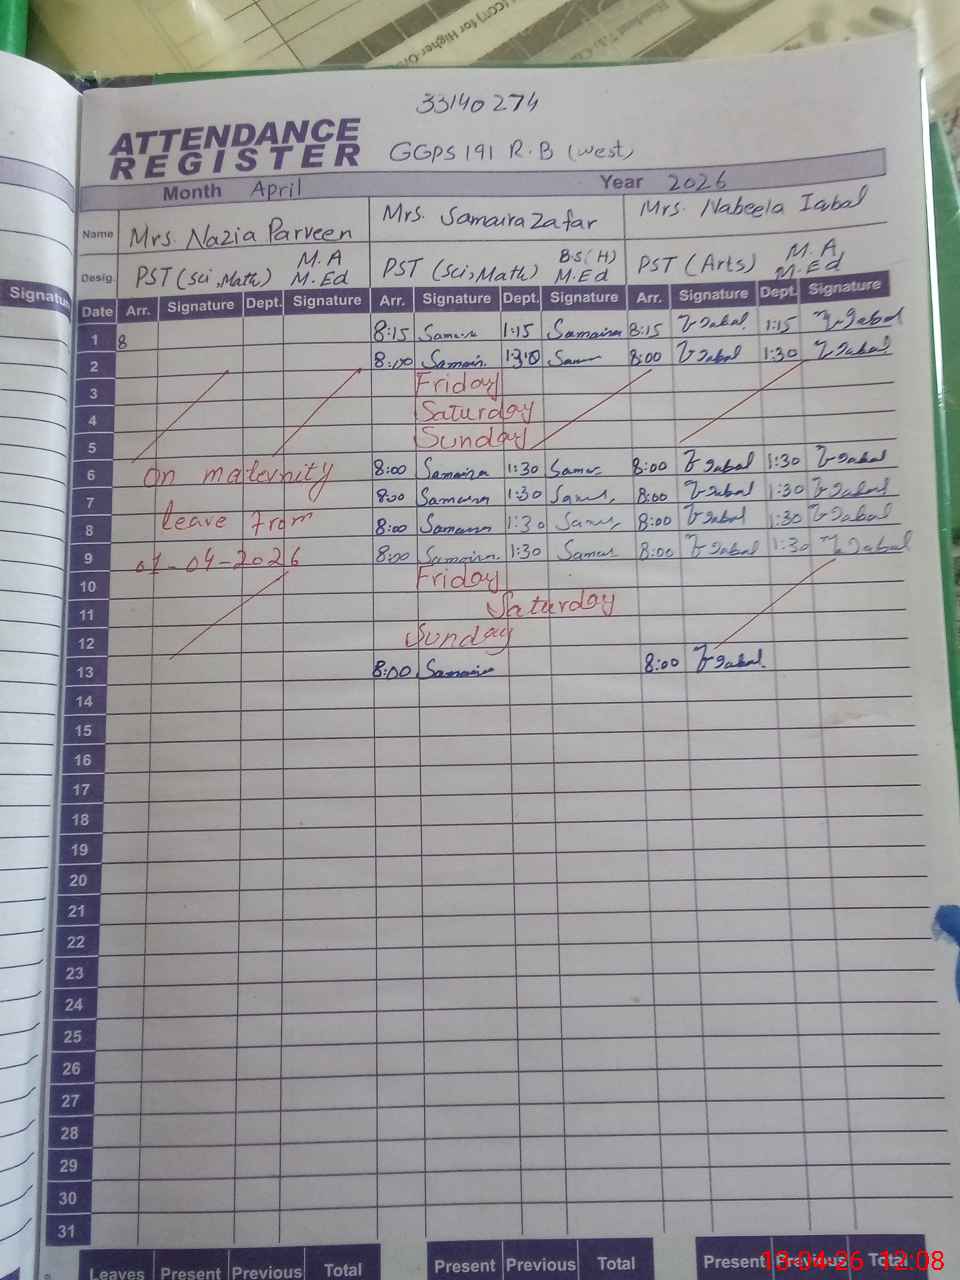 (CCT) for Higher-O
33140274
ATTENDANCE
REGISTER
GGPS 191 R.B (west)
Month April Year 2026
Name Mrs. Nazia Parveen Mrs. Samaira Zafar Mrs. Nabeela Iqbal
Desig. PST (Sci, Math) M.A M.Ed PST (Sci, Math) B.S (H) M.Ed PST (Arts) M.A M.Ed
Signature
Date Arr. Signature Dept. Signature Arr. Signature Dept. Signature Arr. Signature Dept. Signature
1 8 8:15 Samaira 1:15 Samaira 8:15 Iqbal 1:15 Iqbal
2 8:00 Samaira Sam 8:00 Iqbal 1:30 Iqbal
3 Friday
4 Saturday
5 Sunday
6 on maternity 8:00 Samaira 1:30 Samaira 8:00 Iqbal 1:30 Iqbal
7 8:00 Samaira 1:30 Samaira 8:00 Iqbal 1:30 Iqbal
8 leave from 8:00 Samaira 1:30 Samaira 8:00 Iqbal 1:30 Iqbal
9 01-04-2026 8:00 Samaira 1:30 Samaira 8:00 Iqbal 1:30 Iqbal
10 Friday
11 Saturday
12 Sunday
13 8:00 Samaira 8:00 Iqbal
14
15
16
17
18
19
20
21
22
23
24
25
26
27
28
29
30
31
Leaves Present Previous Total Present Previous Total Present Previous Total
13-04-26 12:08